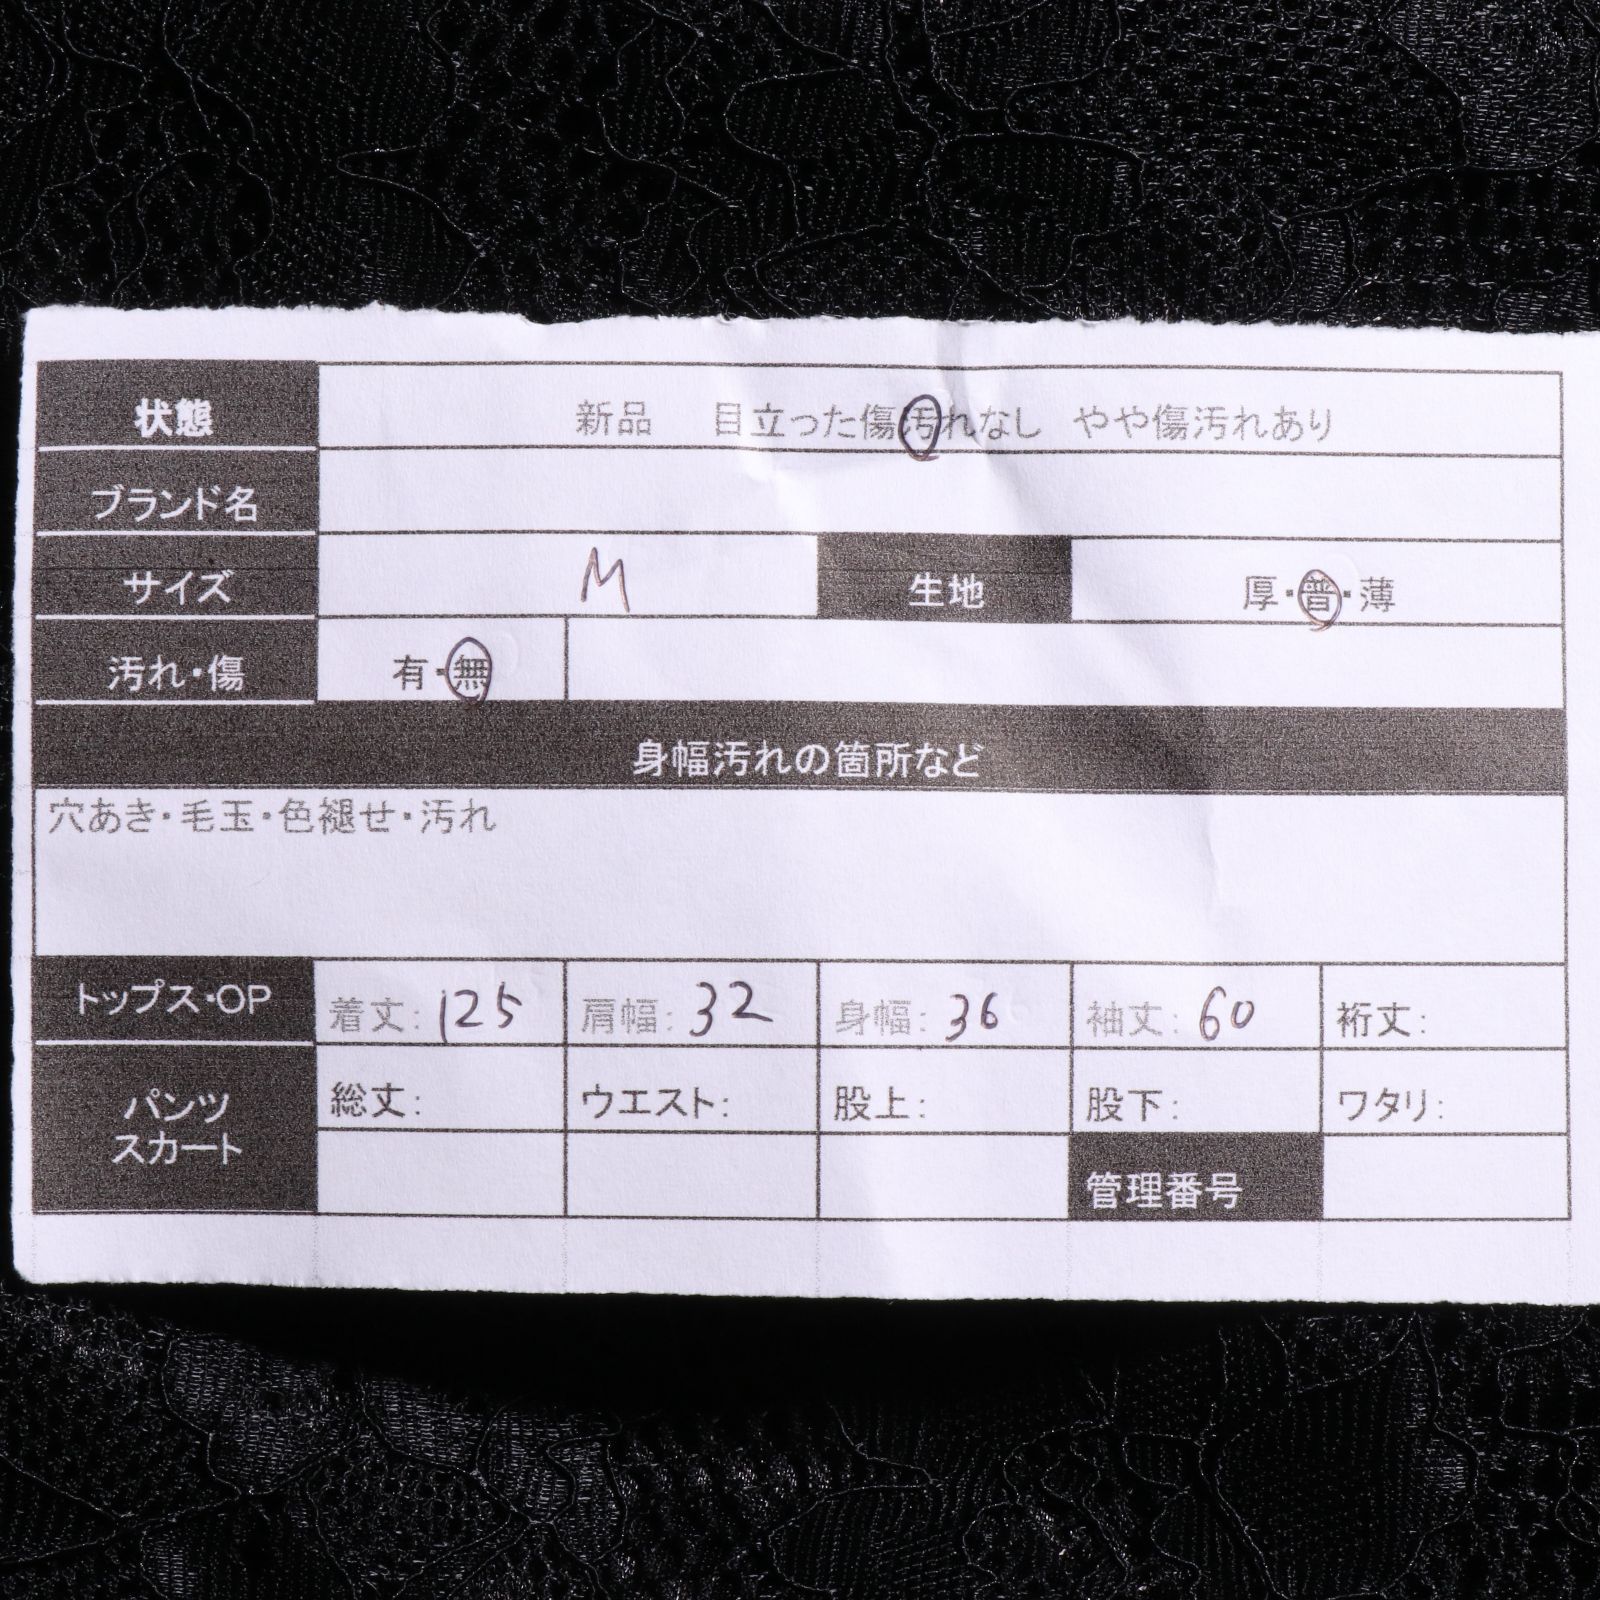 状態 新品 目立った傷汚れなし やや傷汚れあり
ブランド名
サイズ M 生地 厚・普・薄
汚れ・傷 有・無
身幅汚れの箇所など
穴あき・毛玉・色褪せ・汚れ
トップス・OP 着丈: 125 肩幅: 32 身幅: 36 袖丈: 60 裄丈:
パンツ
スカート
総丈: ウエスト: 股上: 股下: ワタリ:
管理番号